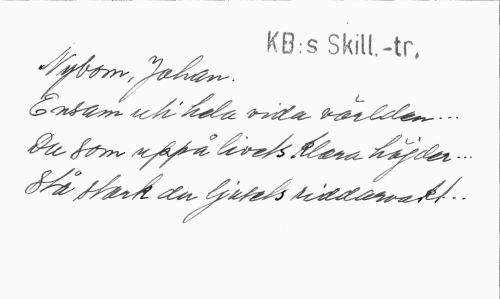 KB:s Skill.-tr.
Nybom, Johan.
Ensam uti hela vida världen...
Du som uppå livets klara höjder...
Stå stark du ljusets riddarvakt...